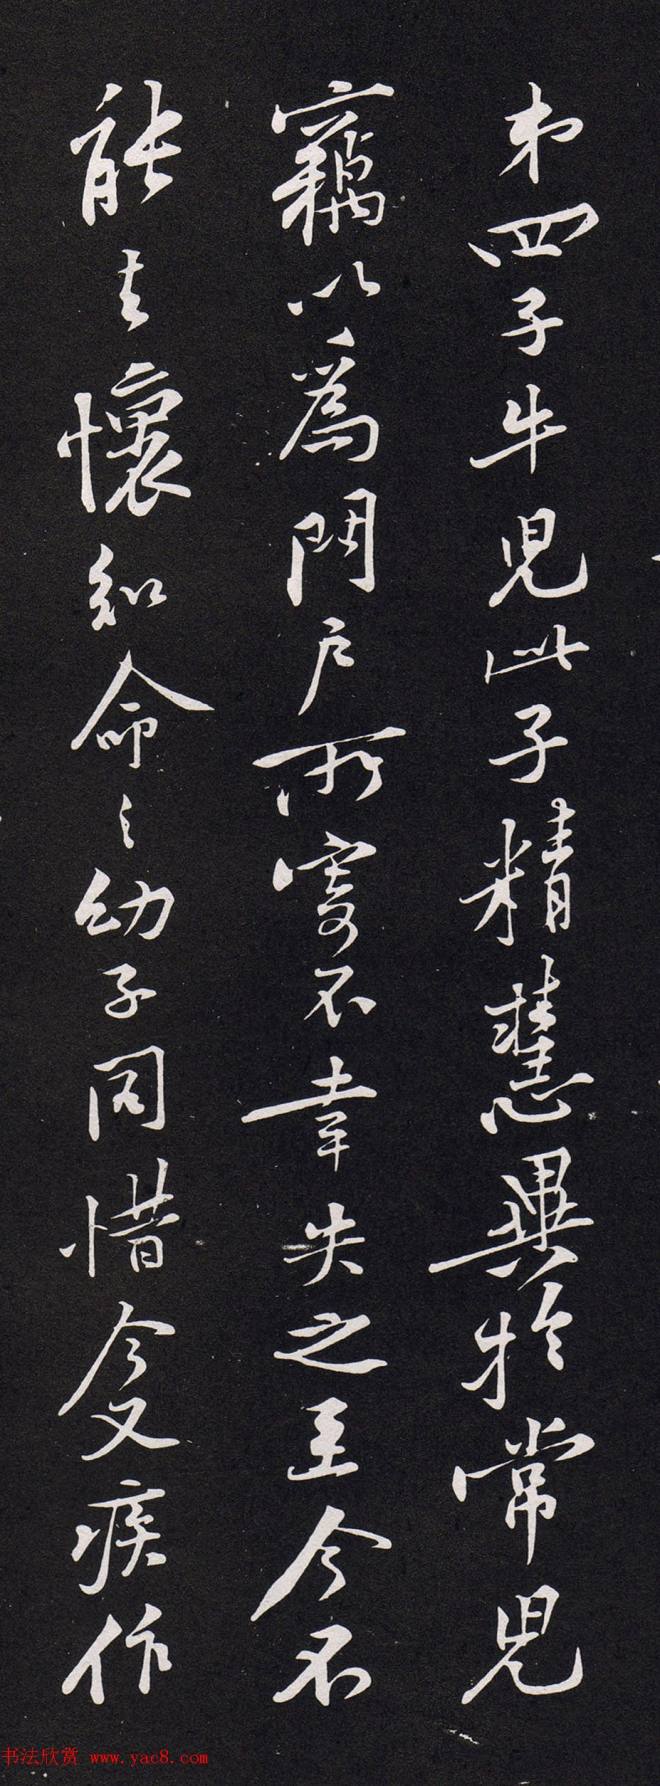 弟四子牛兒此子精慧異於常兒
竊以為門戶所寄不幸失之至今不
能去懷知命之幼子同惜今又疾作
书法欣赏 www.yac8.com